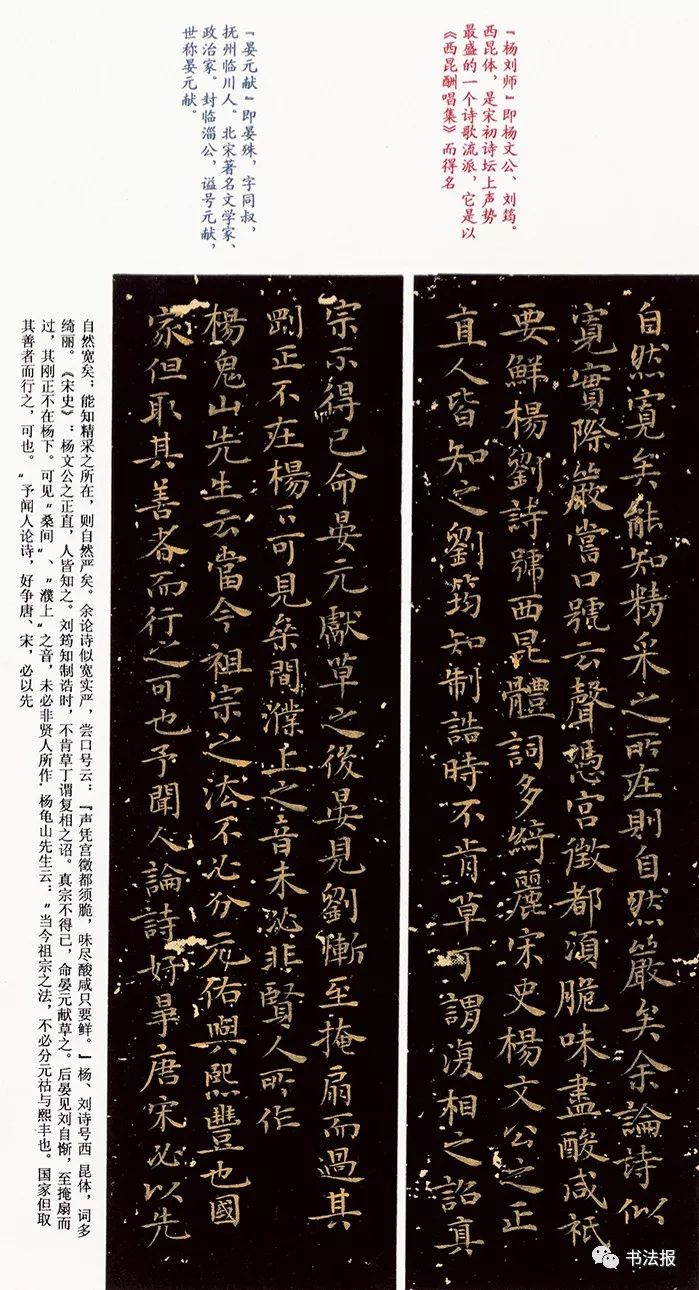 『杨刘师』即杨文公、刘筠。
西昆体，是宋初诗坛上声势
最盛的一个诗歌流派，它是以
《西昆酬唱集》而得名
『晏元献』即晏殊，字同叔，
抚州临川人。北宋著名文学家、
政治家。封临淄公，谥号元献，
世称晏元献。
自然寬矣能知精采之所在則自然嚴矣余論詩似
寬實際嚴嘗口號云聲憑宮徵都須脆味盡酸咸祇
要鮮楊劉詩號西昆體詞多綺麗宋史楊文公之正
直人皆知之劉筠知制誥時不肯草丁謂復相之詔真
宗不得已命晏元獻草之後晏見劉慚至掩扇而過其
剛正不在楊下可見桒間濮上之音未必非賢人所作
楊龜山先生云當今祖宗之法不必分元佑與熙豐也國
家但取其善者而行之可也予聞人論詩好爭唐宋必以先
自然宽矣；能知精采之所在，则自然严矣。余论诗似宽实严，尝口号云：『声凭宫徵都须脆，味尽酸咸只要鲜。』杨、刘诗号西昆体，词多
绮丽。《宋史》：杨文公之正直，人皆知之。刘筠知制诰时，不肯草丁谓复相之诏。真宗不得已，命晏元献草之。后晏见刘自惭，至掩扇而
过，其刚正不在杨下。可见“桑间”、“濮上”之音，未必非贤人所作。杨龟山先生云：“当今祖宗之法，不必分元祐与熙丰也。国家但取
其善者而行之，可也。”予闻人论诗，好争唐、宋，必以先
书法报